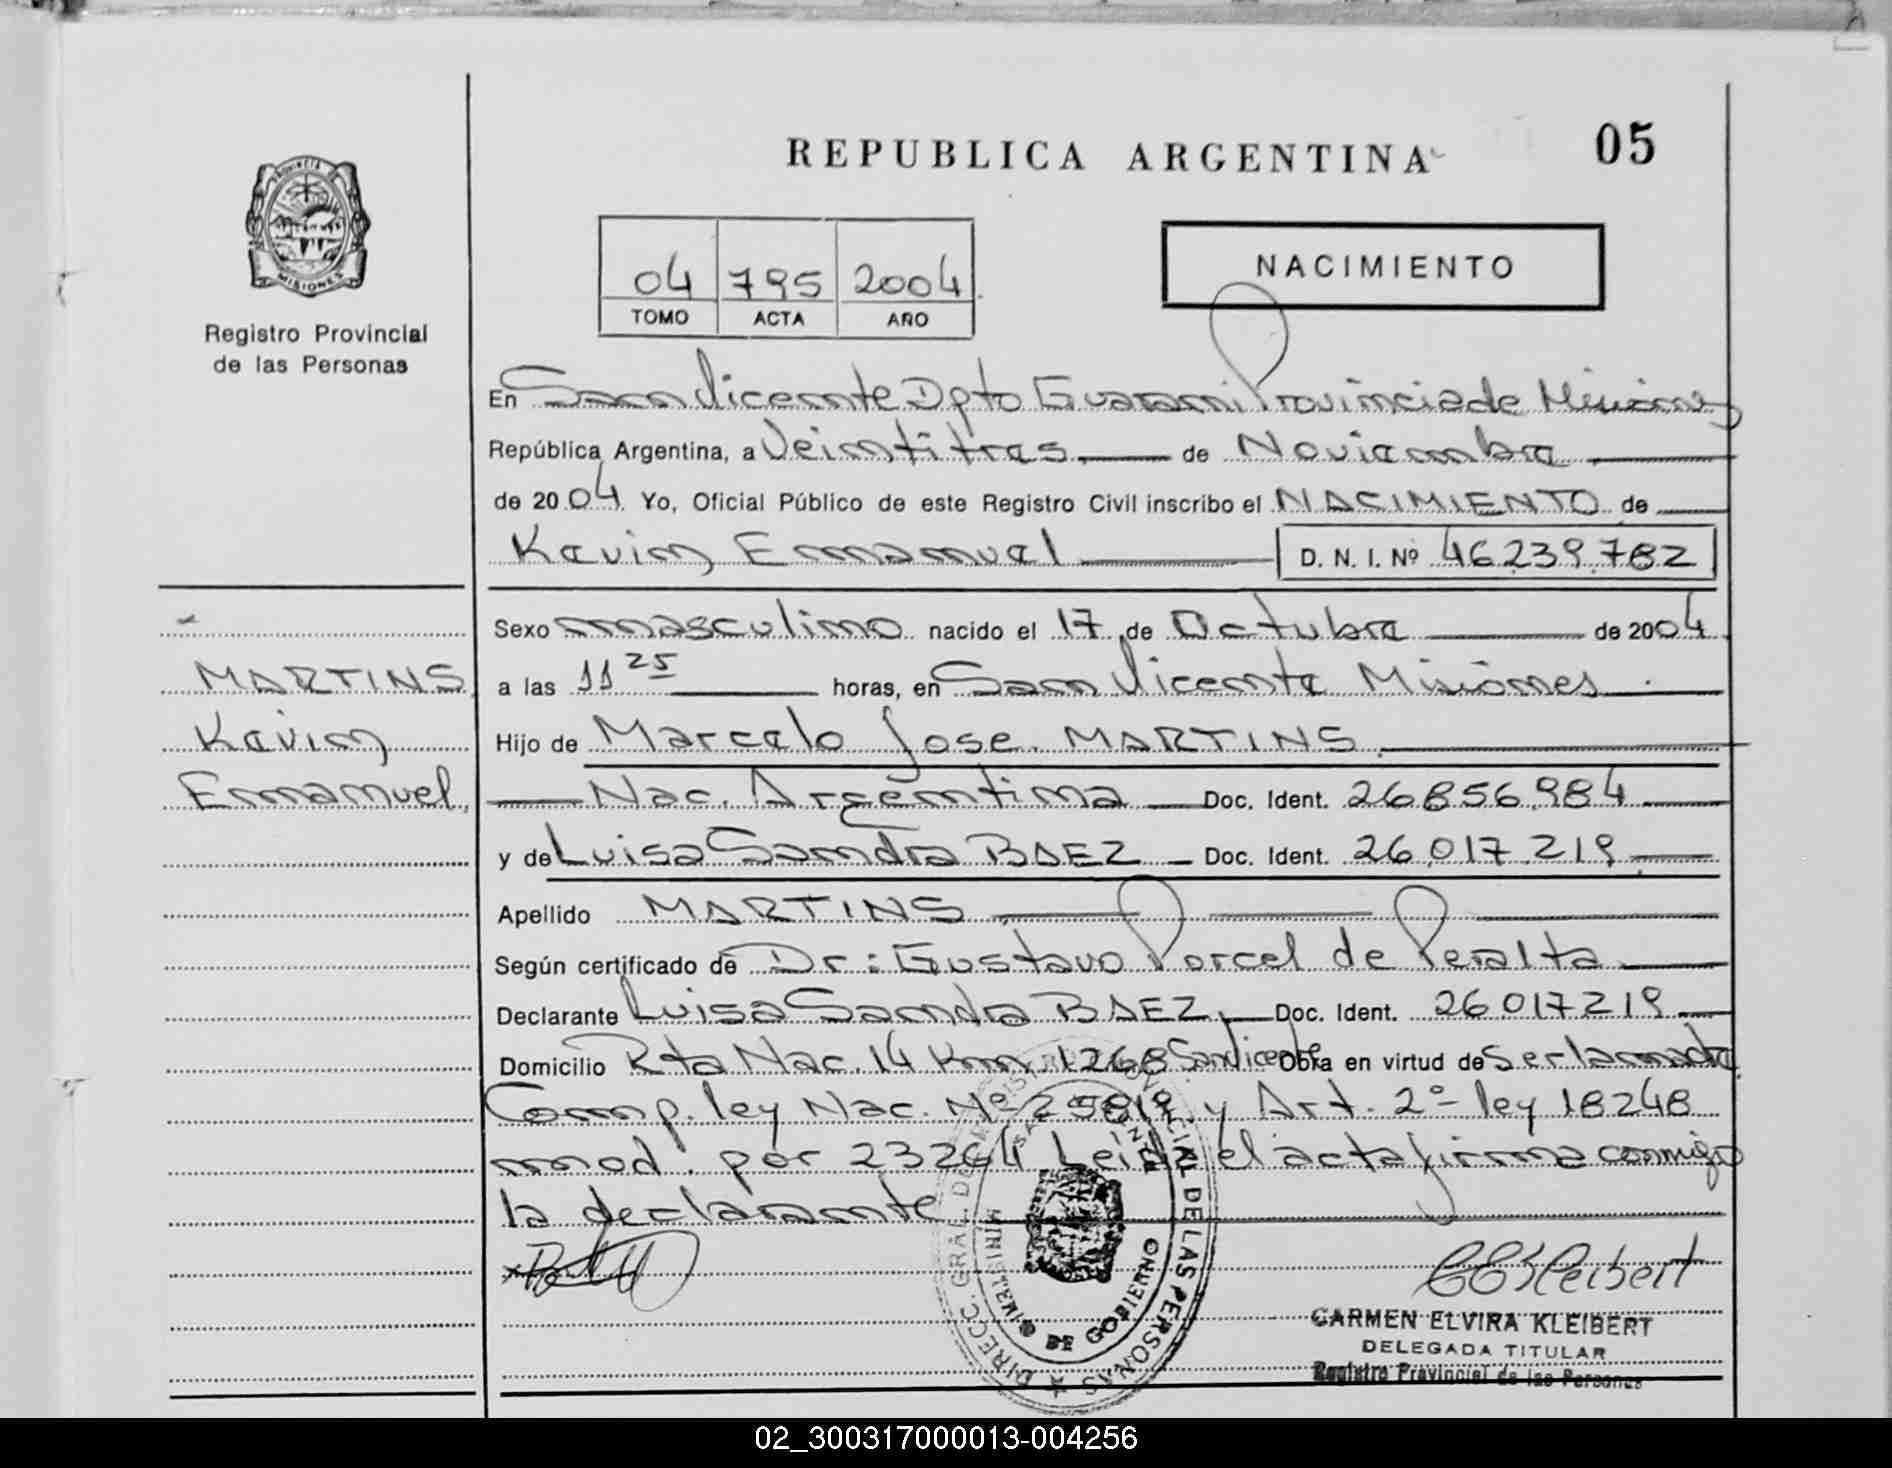 REPUBLICA ARGENTINA
05
PROVINCIA DE
MISIONES
Registro Provincial
de las Personas
04 795 2004
TOMO ACTA AÑO
NACIMIENTO
En San Vicente Dpto Guarani Provincia de Misiones
República Argentina, a Veintitres de Noviembre
de 2004 Yo, Oficial Público de este Registro Civil inscribo el NACIMIENTO de
Kevin Emanuel D. N. I. Nº 46.239.782
Sexo masculino nacido el 17 de Octubre de 2004
a las 11 25 horas, en San Vicente Misiones
Hijo de Marcelo Jose MARTINS
Nac. Argentina Doc. Ident. 26.856.984
y de Luisa Sandra BAEZ Doc. Ident. 26.017.219
Apellido MARTINS
Según certificado de Dr: Gustavo Porcel de Peralta
Declarante Luisa Sandra BAEZ Doc. Ident. 26.017.219
Domicilio Rta Nac. 14 Km 1268 San Vicente Obra en virtud de Ser la madre
Comp. ley Nac. Nº 25819 y Art. 2º ley 18248
mod. por 23264 Leida el acta firma conmigo
la declarante
MARTINS
Kevin
Emanuel
DIRECC. GRAL. DEL REGISTRO PROVINCIAL DE LAS PERSONAS
MINISTERIO DE GOBIERNO
SAN VICENTE
CEKleibert
CARMEN ELVIRA KLEIBERT
DELEGADA TITULAR
Registro Provincial de las Personas
02_300317000013-004256